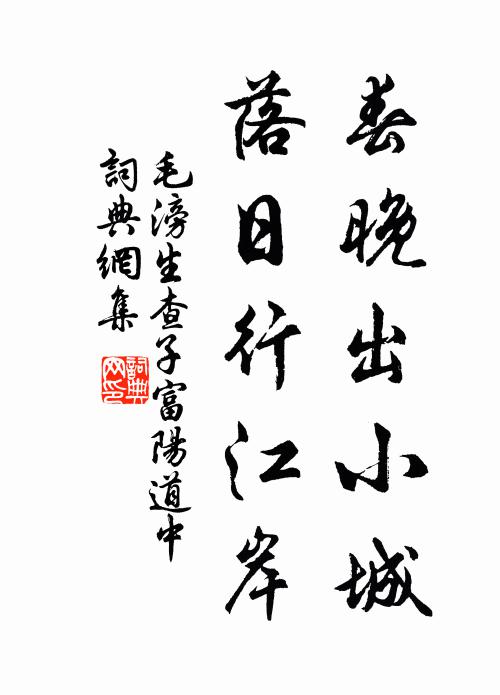 春晚出小城
落日行江岸
毛滂生查子富陽道中
詞典網集
詞典
网印